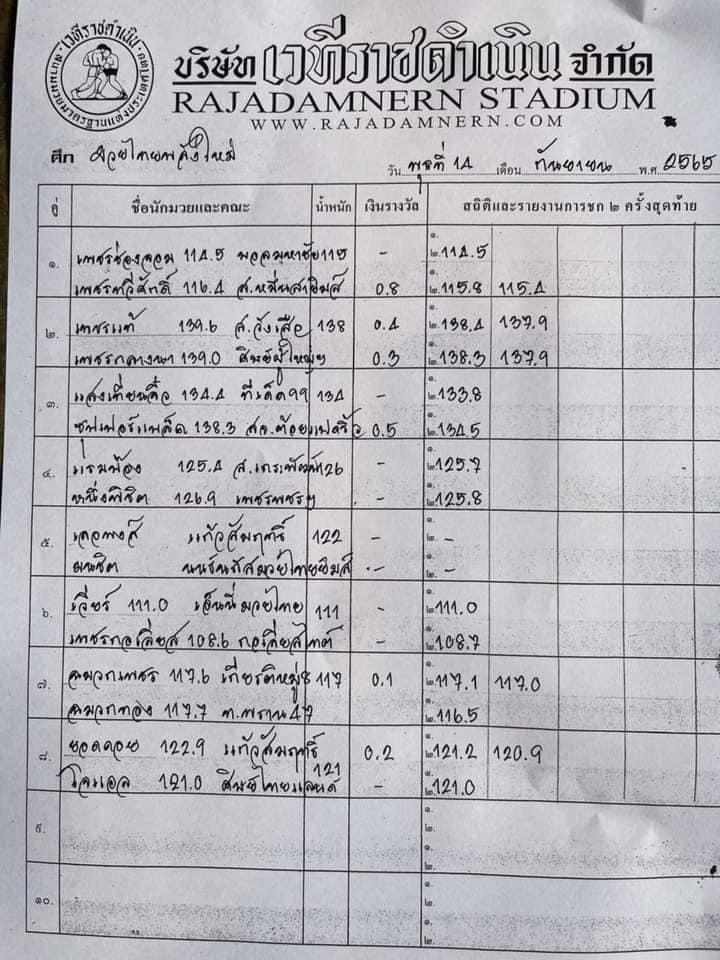 เวทีราชดำเนิน
บริษัท เวทีราชดำเนิน จำกัด
RAJADAMNERN STADIUM
WWW.RAJADAMNERN.COM
ศึก มวยไทยพลังใหม่
วัน พุธที่ 14 เดือน กันยายน พ.ศ. 2565
คู่ ชื่อนักมวยและคณะ น้ำหนัก เงินรางวัล สถิติและรายงานการชก ๒ ครั้งสุดท้าย
๑. เพชรช่องจอม 114.5 พอลมหาชัย 115 - ๑. ๒. 114.5
เพชรทวีศักดิ์ 116.4 ส. 0.8 ๑. ๒. 115.8 115.4
๒. เพชรแท้ 139.6 ส.วังเสือ 138 0.4 ๑. ๒. 138.4 137.9
เพชรกลางนา 139.0 ศิษย์ผู้ใหญ่ฯ 0.3 ๑. ๒. 138.3 137.9
๓. 134.4 ทีเด็ด99 134 - ๑. ๒. 133.8
ซุปเปอร์แบล็ค 138.3 สจ.ต้อยแปดริ้ว 0.5 ๑. ๒. 134.5
๔. 125.4 126 - ๑. ๒. 125.7
หนึ่งพิชิต 126.9 เพชรพชรฯ - ๑. ๒. 125.8
๕. แก้วสัมฤทธิ์ 122 - ๑. ๒. -
- ๑. ๒. -
๖. เวียร์ 111.0 เอ็นนี่มวยไทย 111 - ๑. ๒. 111.0
108.6 - ๑. ๒. 108.7
๗. ฉมวกเพชร 117.6 เกียรติหมู่8 117 0.1 ๑. ๒. 117.1 117.0
ฉมวกทอง 117.7 ท.พราน47 ๑. ๒. 116.5
๘. ยอดดอย 122.9 แก้วสัมฤทธิ์ 121 0.2 ๑. ๒. 121.2 120.9
โจเอล 121.0 ศิษย์ไทยแลนด์ - ๑. ๒. 121.0
๙. ๑. ๒.
๑. ๒.
๑๐. ๑. ๒.
๑. ๒.